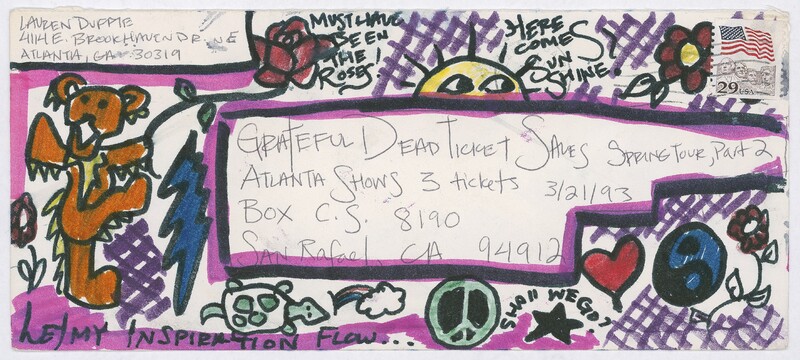 LAUREN DUPPIE
4114 E. BROOKHAVEN DR. NE
ATLANTA, GA 30319
MUST HAVE
BEEN
THE
ROSES!
HERE
COMES
SUN
SHINE!
29 USA
GRATEFUL DEAD TICKET SALES SPRING TOUR, PART 2
ATLANTA SHOWS 3 tickets 3/21/93
BOX C.S. 8190
SAN RAFAEL, CA 94912
SHALL WE GO?
LET MY INSPIRATION FLOW...